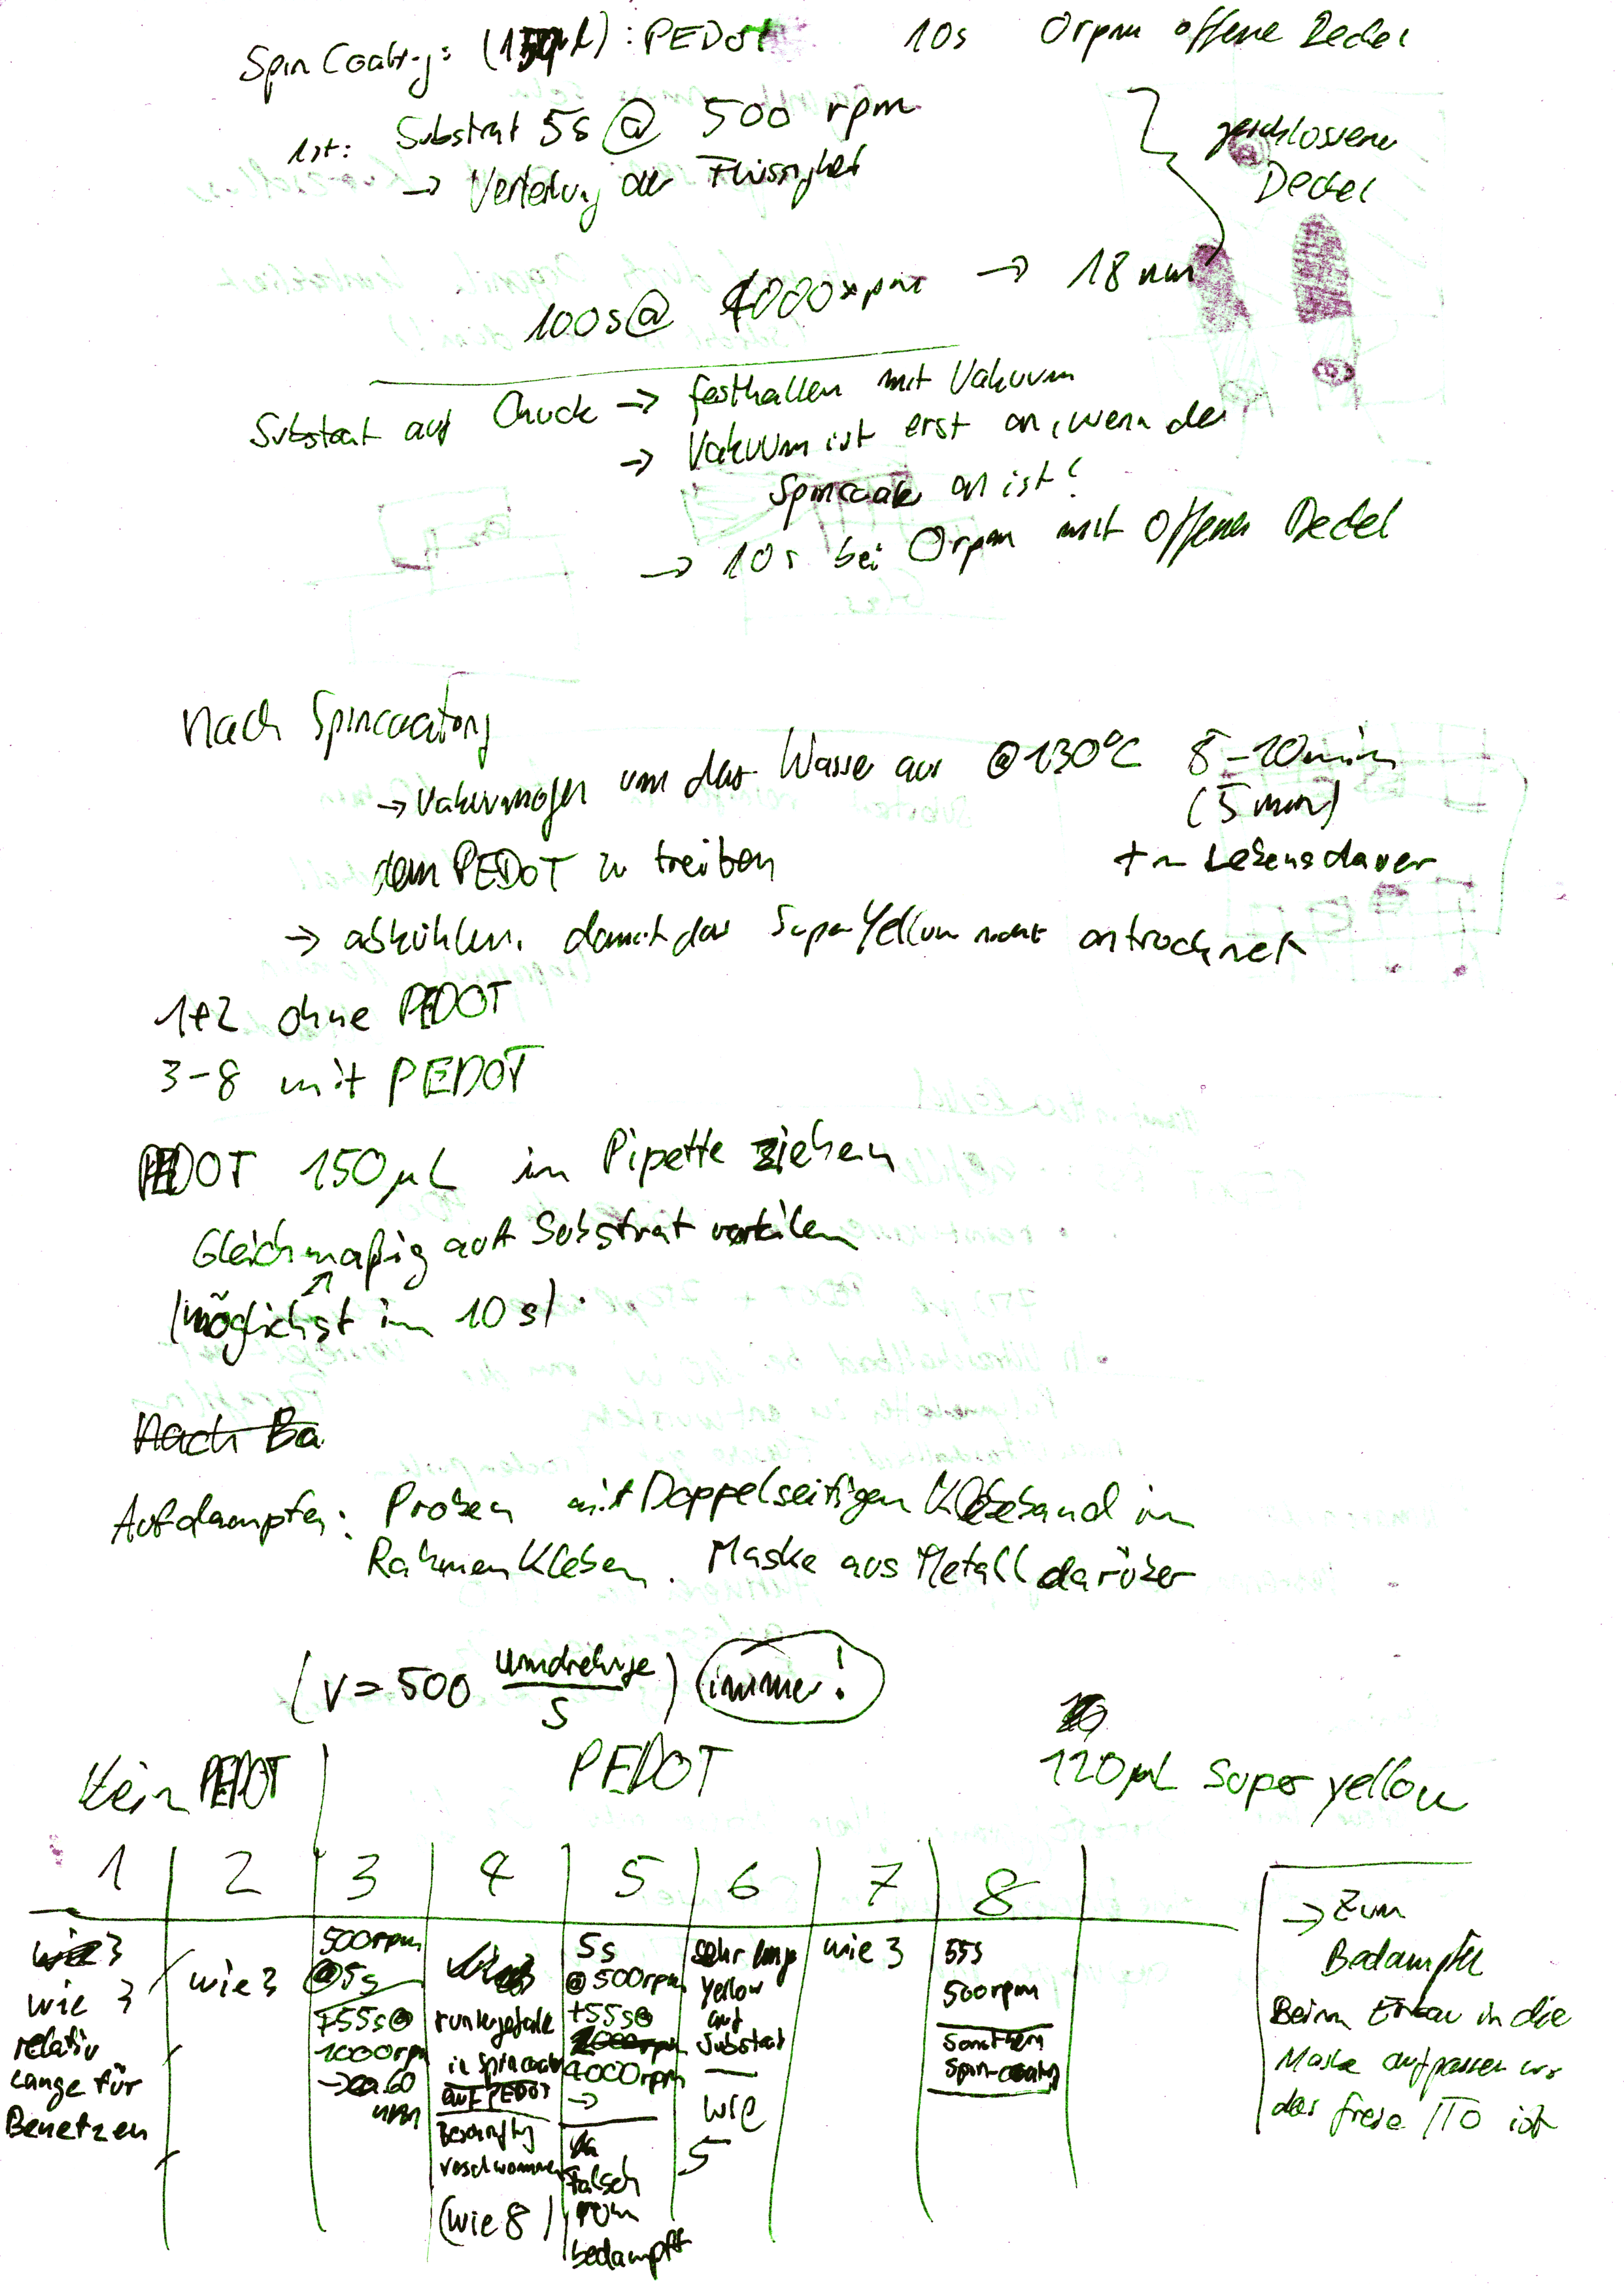 Spin Coating: (150µl): PEDOT 10s 0rpm offene Deckel
1st: Substrat 5s @ 500 rpm
→ Verteilung der Flüssigkeit
geschlossene
Deckel
100s @ 4000rpm → 18 nm
Substrat auf Chuck → festhalten mit Vakuum
→ Vakuum ist erst an, wenn der
Spincoater an ist!
→ 10s bei 0rpm mit offenen Deckel
Nach Spincoating
→ Vakuumofen um das Wasser aus @130°C 8-10min
(5min)
dem PEDOT zu treiben
Lebensdauer
→ abkühlen, damit das SuperYellow nicht antrocknet
1+2 ohne PEDOT
3-8 mit PEDOT
PEDOT 150µL in Pipette ziehen
Gleichmäßig auf Substrat verteilen
(möglichst in 10s)
Nach Ba
Aufdampfen: Proben mit Doppelseitigen Klebeband in
Rahmen Kleben. Maske aus Metall darüber
(v = 500 Umdrehunge/s) immer!
Kein PEDOT PEDOT 120µL Super yellow
1 2 3 4 5 6 7 8
wie 3
wie 3
relativ
lange für
Benetzen
wie 3
500rpm
@5s
+55s@
1000rpm
→ca 60
nm
runtergefallen
in Spincoater
auf PEDOT
Beschriftung
verschwommen
(wie 8)
5s
@500rpm
+55s@
4000rpm
→
falsch
rum
bedampft
sehr lang
yellow
auf
Substrat
wie
5
wie 3
55s
500rpm
Spin-coating
→ Zum
Bedampfen
Beim Einbau in die
Maske aufpassen wo
das freie ITO ist